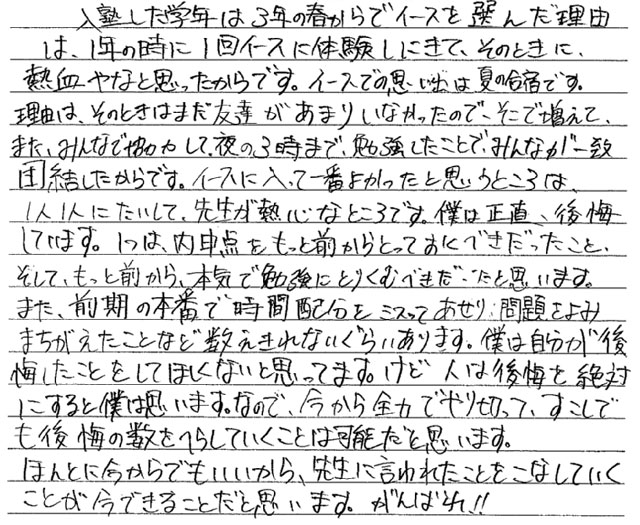 入塾した学年は3年の春からでイースを選んだ理由
は、1年の時に1回イースに体験しにきて、そのときに、
熱血やなと思ったからです。イースでの思い出は夏の合宿です。
理由は、そのときはまだ友達があまりいなかったので、そこで増えて、
また、みんなで協力して、夜の3時まで、勉強したことで、みんなが一致
団結したからです。イースに入って一番よかったと思うところは、
1人1人にたいして、先生が熱心なところです。僕は正直、後悔
しています。1つは、内申点をもっと前からとっておくべきだったこと、
そして、もっと前から、本気で勉強にとりくむべきだったと思います。
また、前期の本番で時間配分をミスってあせり、問題をよみ
まちがえたことなど数えきれないぐらいあります。僕は自分が後
悔したことをしてほしくないと思ってます。けど人は後悔を絶対
にすると僕は思います。なので、今から全力でやり切って、すこしで
も後悔の数をへらしていくことは可能だと思います。
ほんとに今からでもいいから、先生に言われたことをこなしていく
ことが今できることだと思います。がんばれ!!